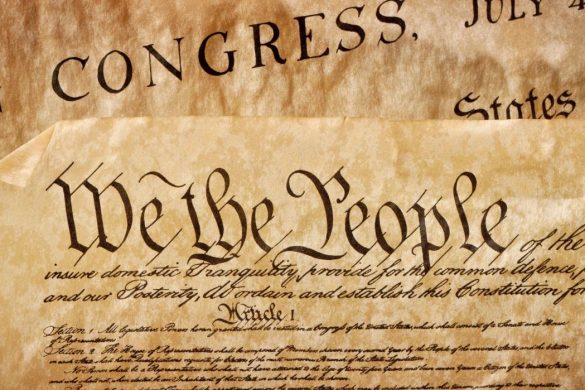 CONGRESS, JULY 4
States
We the People of the
insure domestic Tranquility, provide for the common defence,
and our Posterity, do ordain and establish this Constitution for
Article 1
Section 1 All legislative Powers herein granted shall be vested in a Congress of the United States, which shall consist of a Senate and House
of Representatives.
Section 2 The House of Representatives shall be composed of Members chosen every second Year by the People of the several States, and the Electors
in each State shall have Qualifications requisite for Electors of the most numerous Branch of the State Legislature.
No Person shall be a Representative who shall not have attained to the Age of twenty five Years, and been seven Years a Citizen of the United States,
and who shall not, when elected, be an Inhabitant of that State in which he shall be chosen.